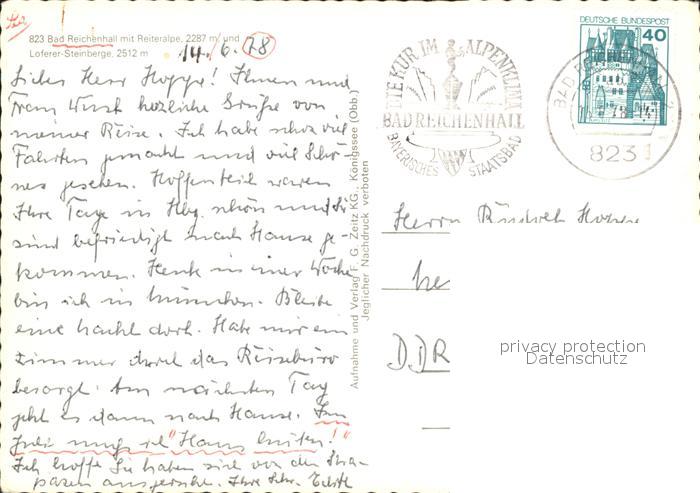 823 Bad Reichenhall mit Reiteralpe, 2287 m und
Loferer-Steinberge, 2512 m
14. 6. 78
Lieber Herr Hoppe! Ihnen und
Frau herzliche Grüße von
meiner Reise. Ich habe schon viel
Fahrten gemacht und viel Schö-
nes gesehen. Hoffentlich waren
Ihre Tage in Hbg. schön und Sie
sind befriedigt nach Hause ge-
kommen. Heute in einer Woche
bin ich in München. Bleibe
eine Nacht dort. Habe mir ein
Zimmer durch das Reisebüro
besorgt. Am nächsten Tag
geht es dann nach Hause. Im
Juli muß ich "Haus hüten!"
Ich hoffe Sie haben sich von den Stra-
pazen ausgeruht. Ihre
Aufnahme und Verlag F. G. Zeitz KG., Königssee (Obb.)
Jeglicher Nachdruck verboten
DIE KUR IM ALPENKLIMA
BAD REICHENHALL
BAYERISCHES STAATSBAD
DEUTSCHE BUNDESPOST
40
BAD REICHENHALL
8231
Herrn
DDR
privacy protection
Datenschutz